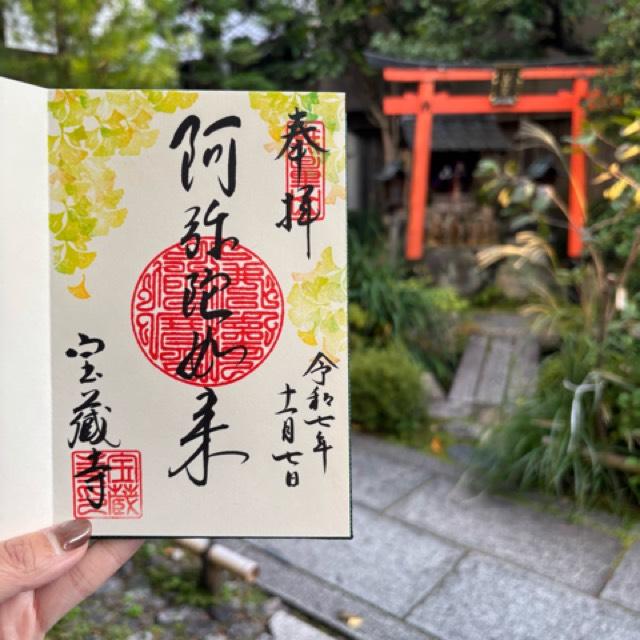 奉拝
阿弥陀如来
令和七年
十一月七日
宝蔵寺
宝蔵